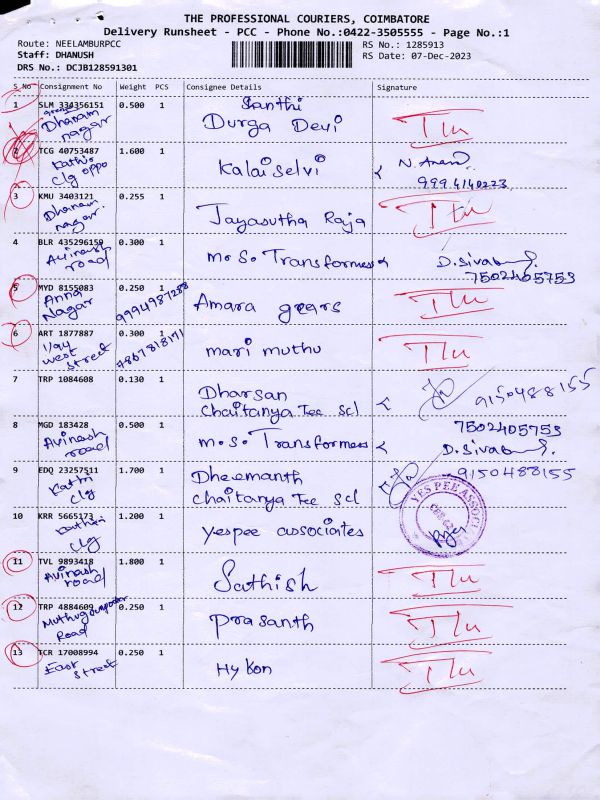 THE PROFESSIONAL COURIERS, COIMBATORE
Delivery Runsheet - PCC - Phone No.:0422-3505555 - Page No.:1
Route: NEELAMBURPCC
RS No.: 1285913
Staff: DHANUSH
RS Date: 07-Dec-2023
DRS No.: DCJB128591301
S No Consignment No Weight PCS Consignee Details Signature
1 SLM 334356151 0.500 1 Santhi
Dhanam nagar Durga Devi
2 TCG 40753487 1.600 1 Kalaiselvi N. Anand
Kathir clg oppo 9994140223
3 KMU 3403121 0.255 1
Dhanam nagar. Jayasutha Raja
4 BLR 435296159 0.300 1 M.S. Transformess
Avinash road 7502405753
5 MYD 8155083 0.250 1 Amara gears
Anna Nagar 9994987288
6 ART 1877887 0.300 1 mari muthu
west street 7867818171
7 TRP 1084608 0.130 1 Dharsan
Chaitanya Tee Scl 9150488155
8 MGD 183428 0.500 1 7502405753
Avinash road M.S. Transformess
9 EDQ 23257511 1.700 1 Dheemanth 9150488155
Kathir clg Chaitanya Tee Scl
10 KRR 5665173 1.200 1 Yespee associates YES PEE ASSOCI
Kathir clg
11 TVL 9893418 1.800 1 Sathish
Avinash road
12 TRP 4884609 0.250 1 Prasanth
Road
13 TCR 17008994 0.250 1 Hykon
East street